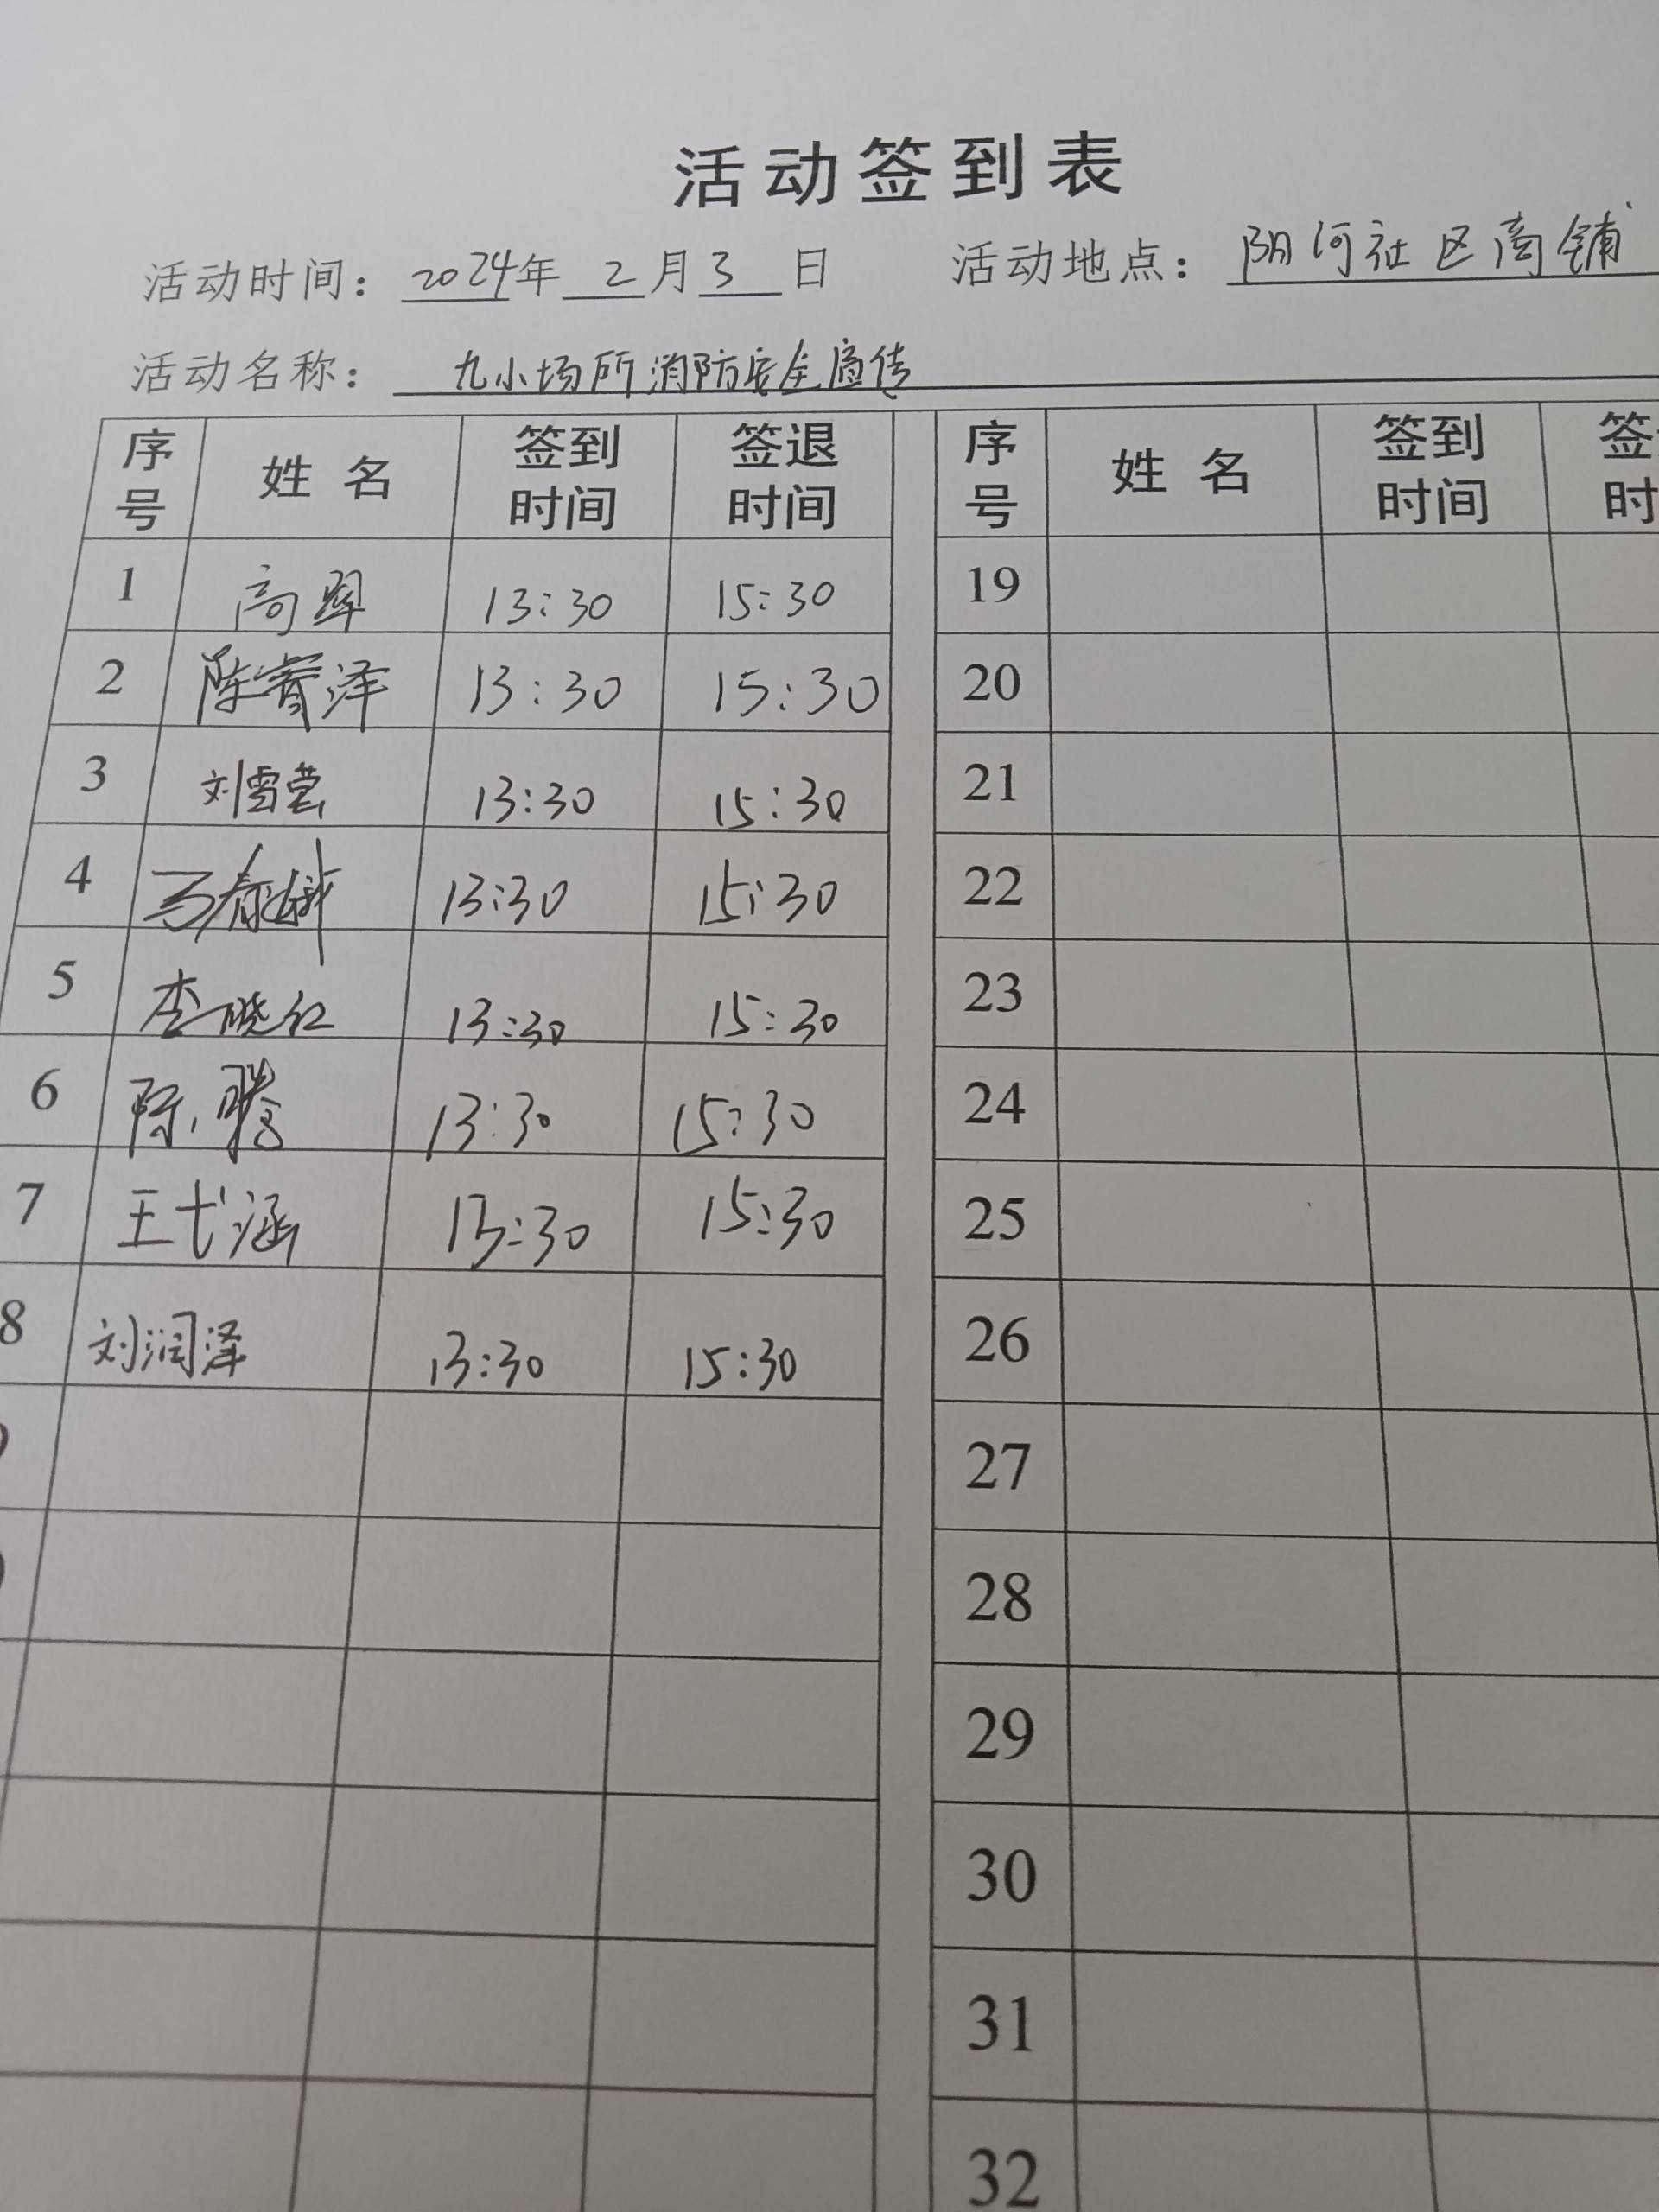 活动签到表
活动时间：2024年 2月3 日 活动地点：阴河社区商铺
活动名称：九小场所消防安全宣传
序号 姓名 签到时间 签退时间 序号 姓名 签到时间 签 时
1 高翠 13:30 15:30 19
2 陈睿泽 13:30 15:30 20
3 刘雪莹 13:30 15:30 21
4 13:30 15:30 22
5 李晓红 13:30 15:30 23
6 陈腾 13:30 15:30 24
7 王弋涵 13:30 15:30 25
8 刘润泽 13:30 15:30 26
27
28
29
30
31
32